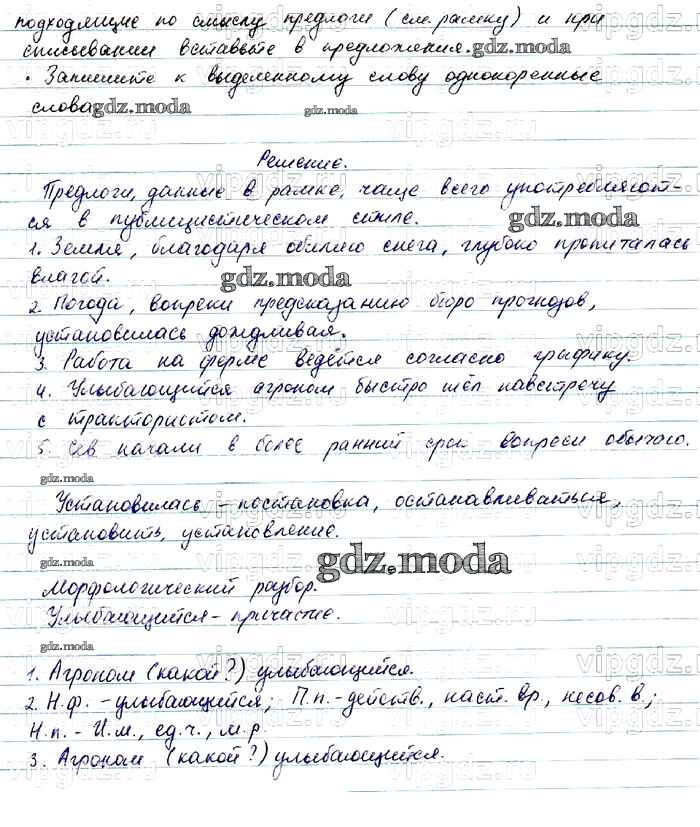 подходящие по смыслу предлоги (см. рамку) и при
списывании вставьте в предложения. gdz.moda
• Запишите к выделенному слову однокоренные
слова gdz.moda gdz.moda
Решение.
Предлоги, данные в рамке, чаще всего употребляют-
ся в публицистическом стиле. gdz.moda
1. Земля, благодаря обилию снега, глубоко пропиталась
влагой. gdz.moda
2. Погода, вопреки предсказанию бюро прогнозов,
установилась дождливая.
3. Работа на ферме ведётся согласно графику.
4. Улыбающийся агроном быстро шёл навстречу
с трактористом.
5. Сев начали в более ранний срок вопреки обычаю.
gdz.moda
Установилась – постановка, останавливаться,
установить, установление.
gdz.moda gdz.moda
Морфологический разбор.
Улыбающийся – причастие.
gdz.moda
1. Агроном (какой?) улыбающийся.
2. Н.ф. – улыбающийся; П.п. – действ., наст. вр., несов. в.;
Н.п. – И.п., ед. ч., м.р.
3. Агроном (какой?) улыбающийся.